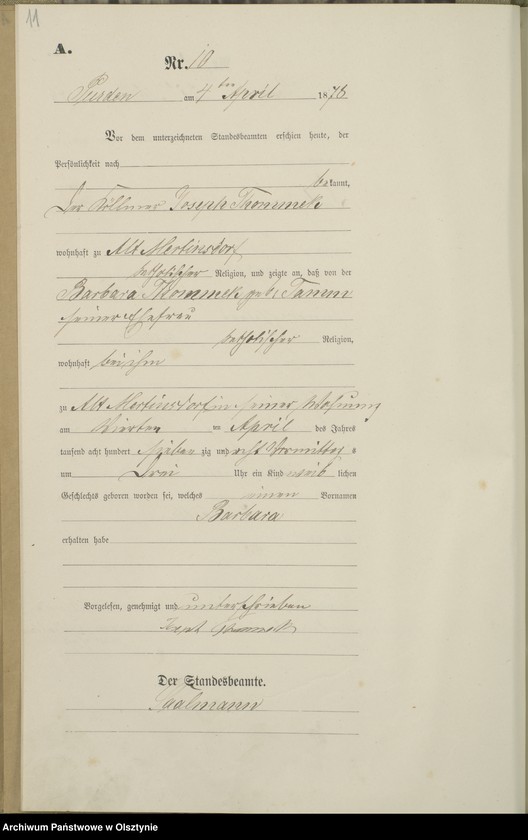 11
A.
Nr. 10
Purden am 4ten April 1878
Vor dem unterzeichneten Standesbeamten erschien heute, der
Persönlichkeit nach
bekannt,
Der Köllmer Joseph Thommek
wohnhaft zu Alt Mertinsdorf
katholischer Religion, und zeigte an, daß von der
Barbara Thommek geb. Tamm
seiner Ehefrau
katholischer Religion,
wohnhaft bei ihm
zu Alt Mertinsdorf in seiner Wohnung
am vierten ten April des Jahres
tausend acht hundert sieben zig und acht Vormittags
um Drei Uhr ein Kind weib lichen
Geschlechts geboren worden sei, welches einen Vornamen
Barbara
erhalten habe
Vorgelesen, genehmigt und unterschrieben
Thommek
Der Standesbeamte.
Archiwum Państwowe w Olsztynie